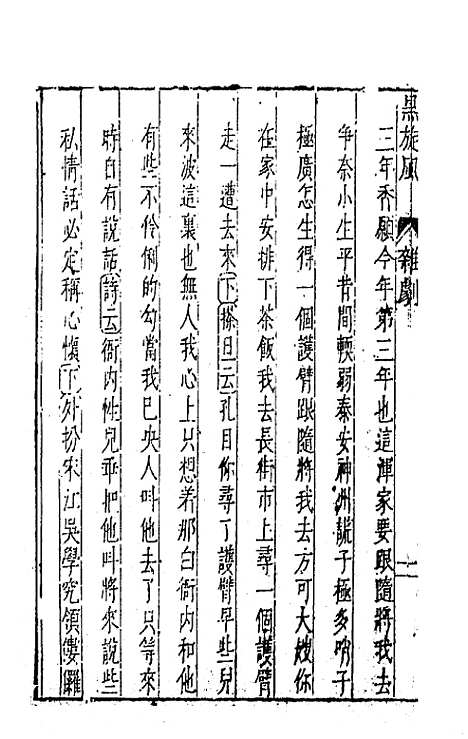 黑旋風 雜劇 二
三年香願今年第三年也這渾家要跟隨將我去
爭奈小生平昔間軟弱泰安神州謊子極多哨子
極廣怎生得一個護臂跟隨將我去方可大嫂你
在家中安排下茶飯我去長街市上尋一個護臂
走一遭去來下搽旦云孔目你尋了護臂早些兒
來波這裏也無人我心上只想着那白衙內和他
有些不伶俐的勾當我已央人叫他去了只等來
時自有說話詩云衙內性兒乖把他叫將來說些
私情話必定稱心懷下外扮宋江吳學究領僂儸